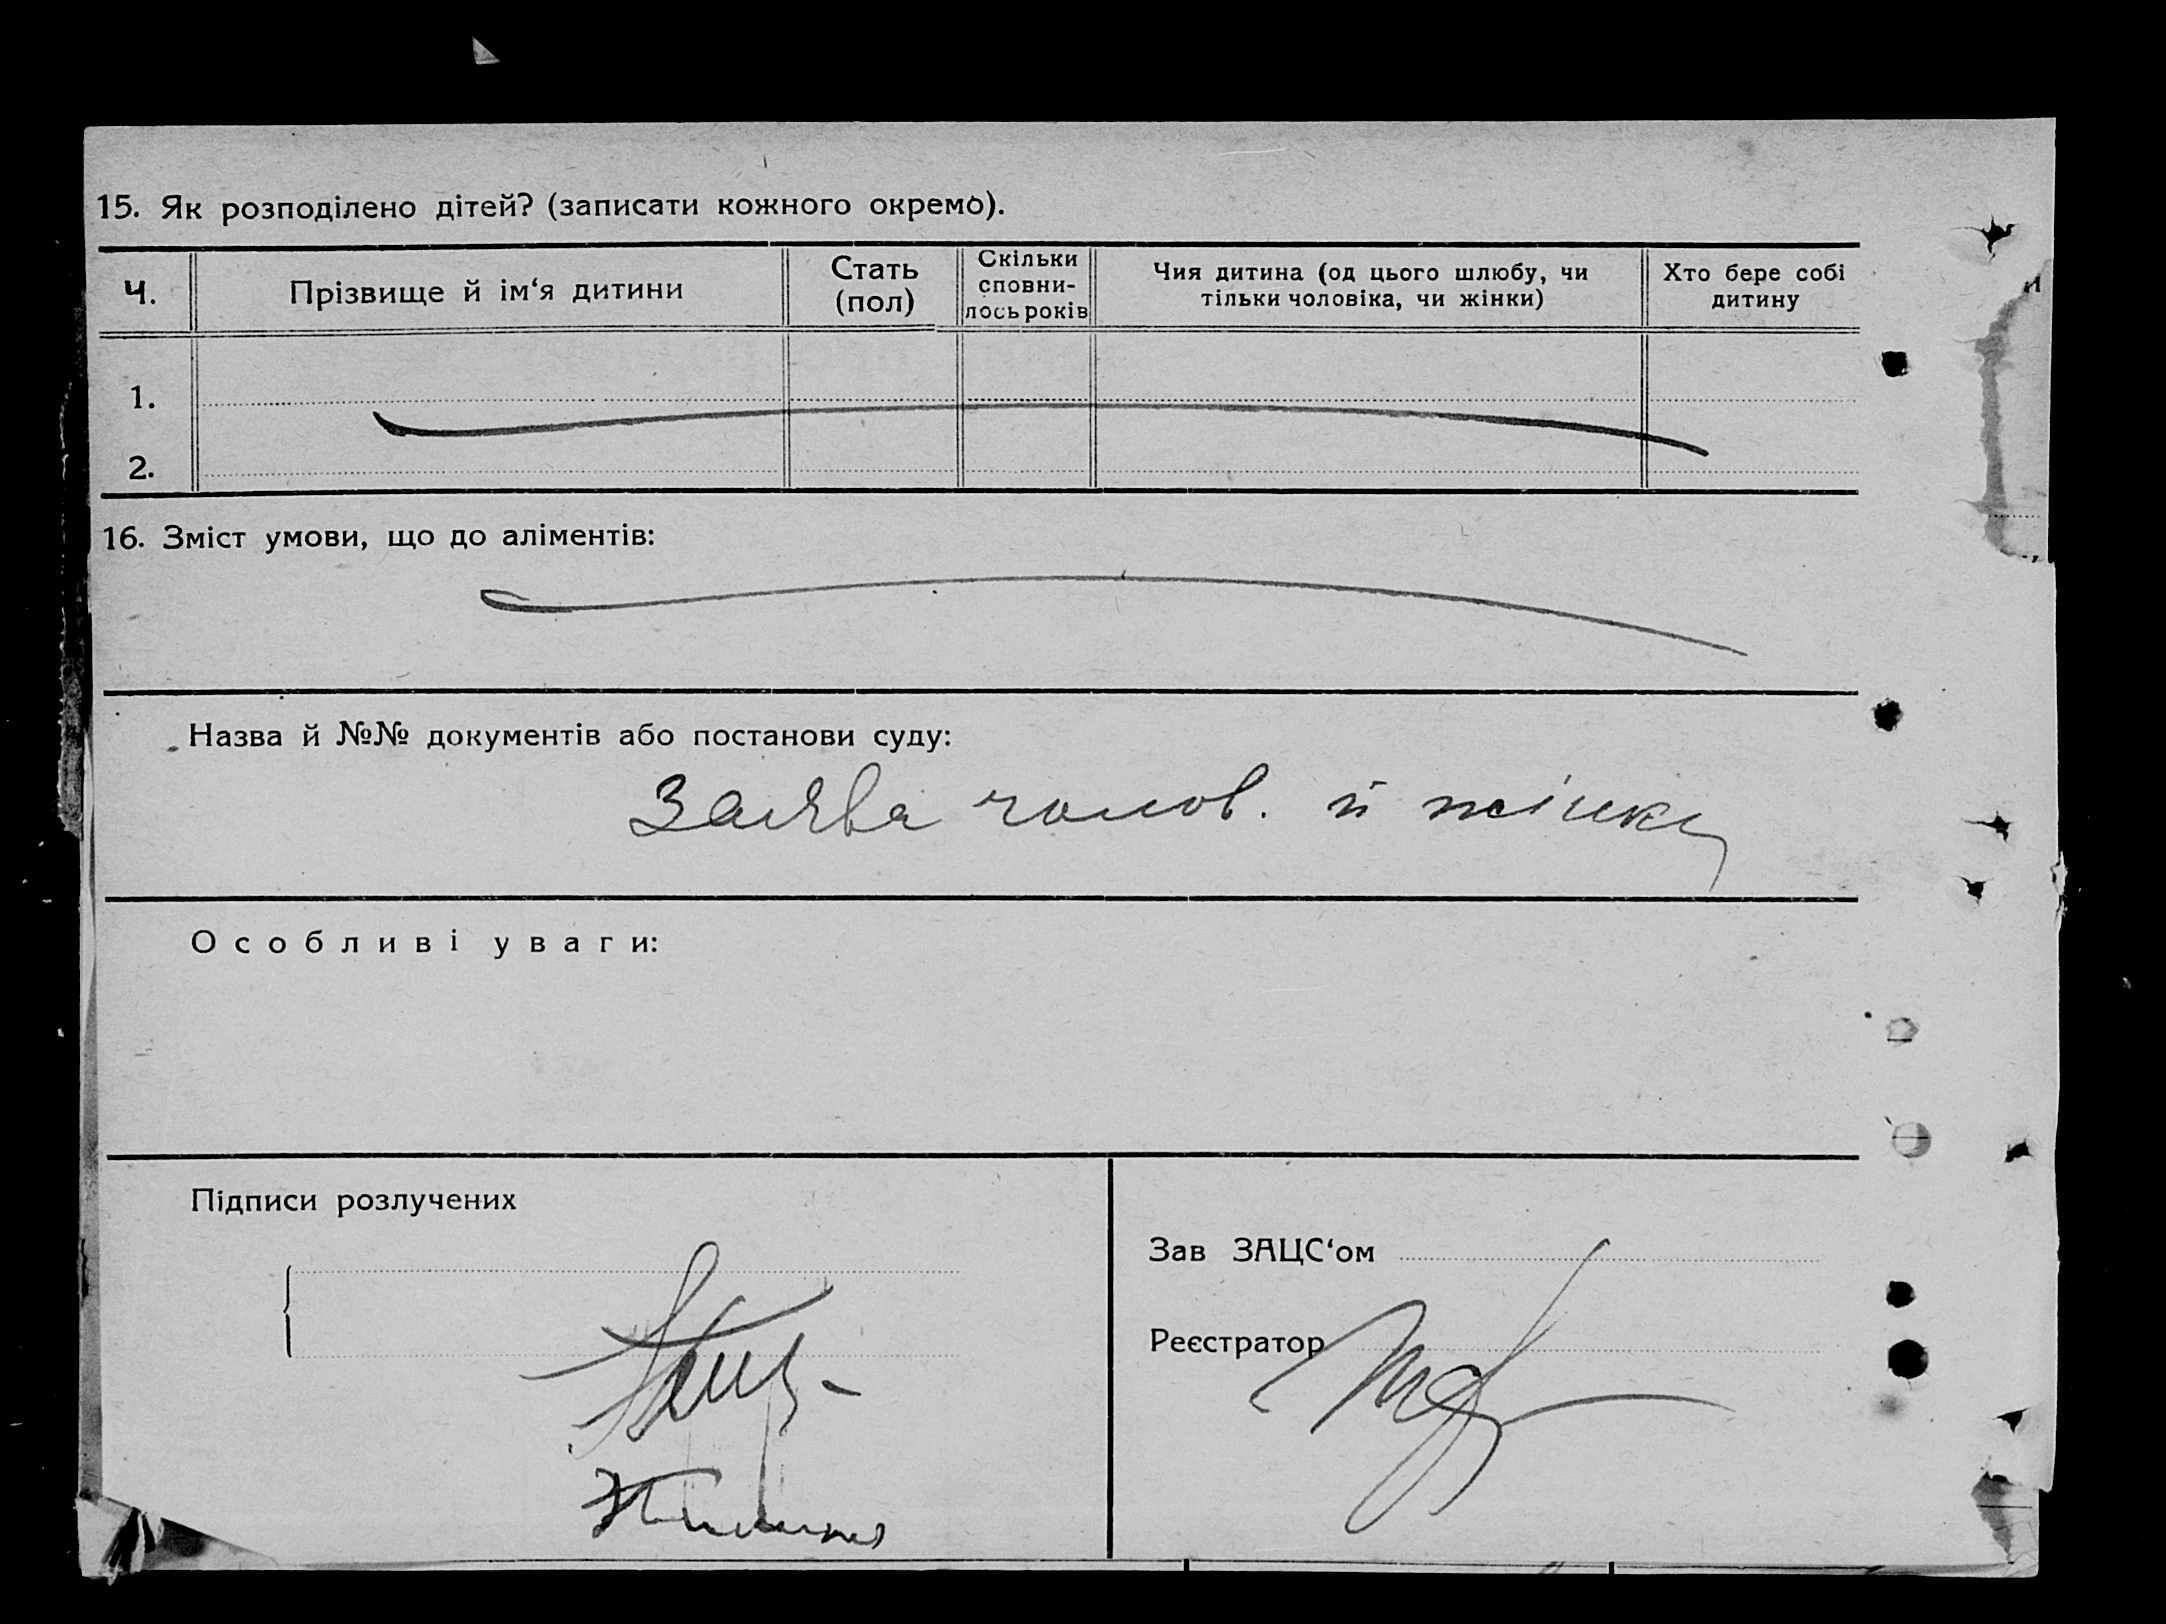 15. Як розподілено дітей? (записати кожного окремо).
Ч.
Прізвище й ім‘я дитини
Стать
(пол)
Скільки
сповни-
лось років
Чия дитина (од цього шлюбу, чи
тільки чоловіка, чи жінки)
Хто бере собі
дитину
1.
2.
16. Зміст умови, що до аліментів:
Назва й №№ документів або постанови суду:
Заява чолов. й жінки
Особливі уваги:
Підписи розлучених
Зав ЗАЦС‘ом
Реєстратор